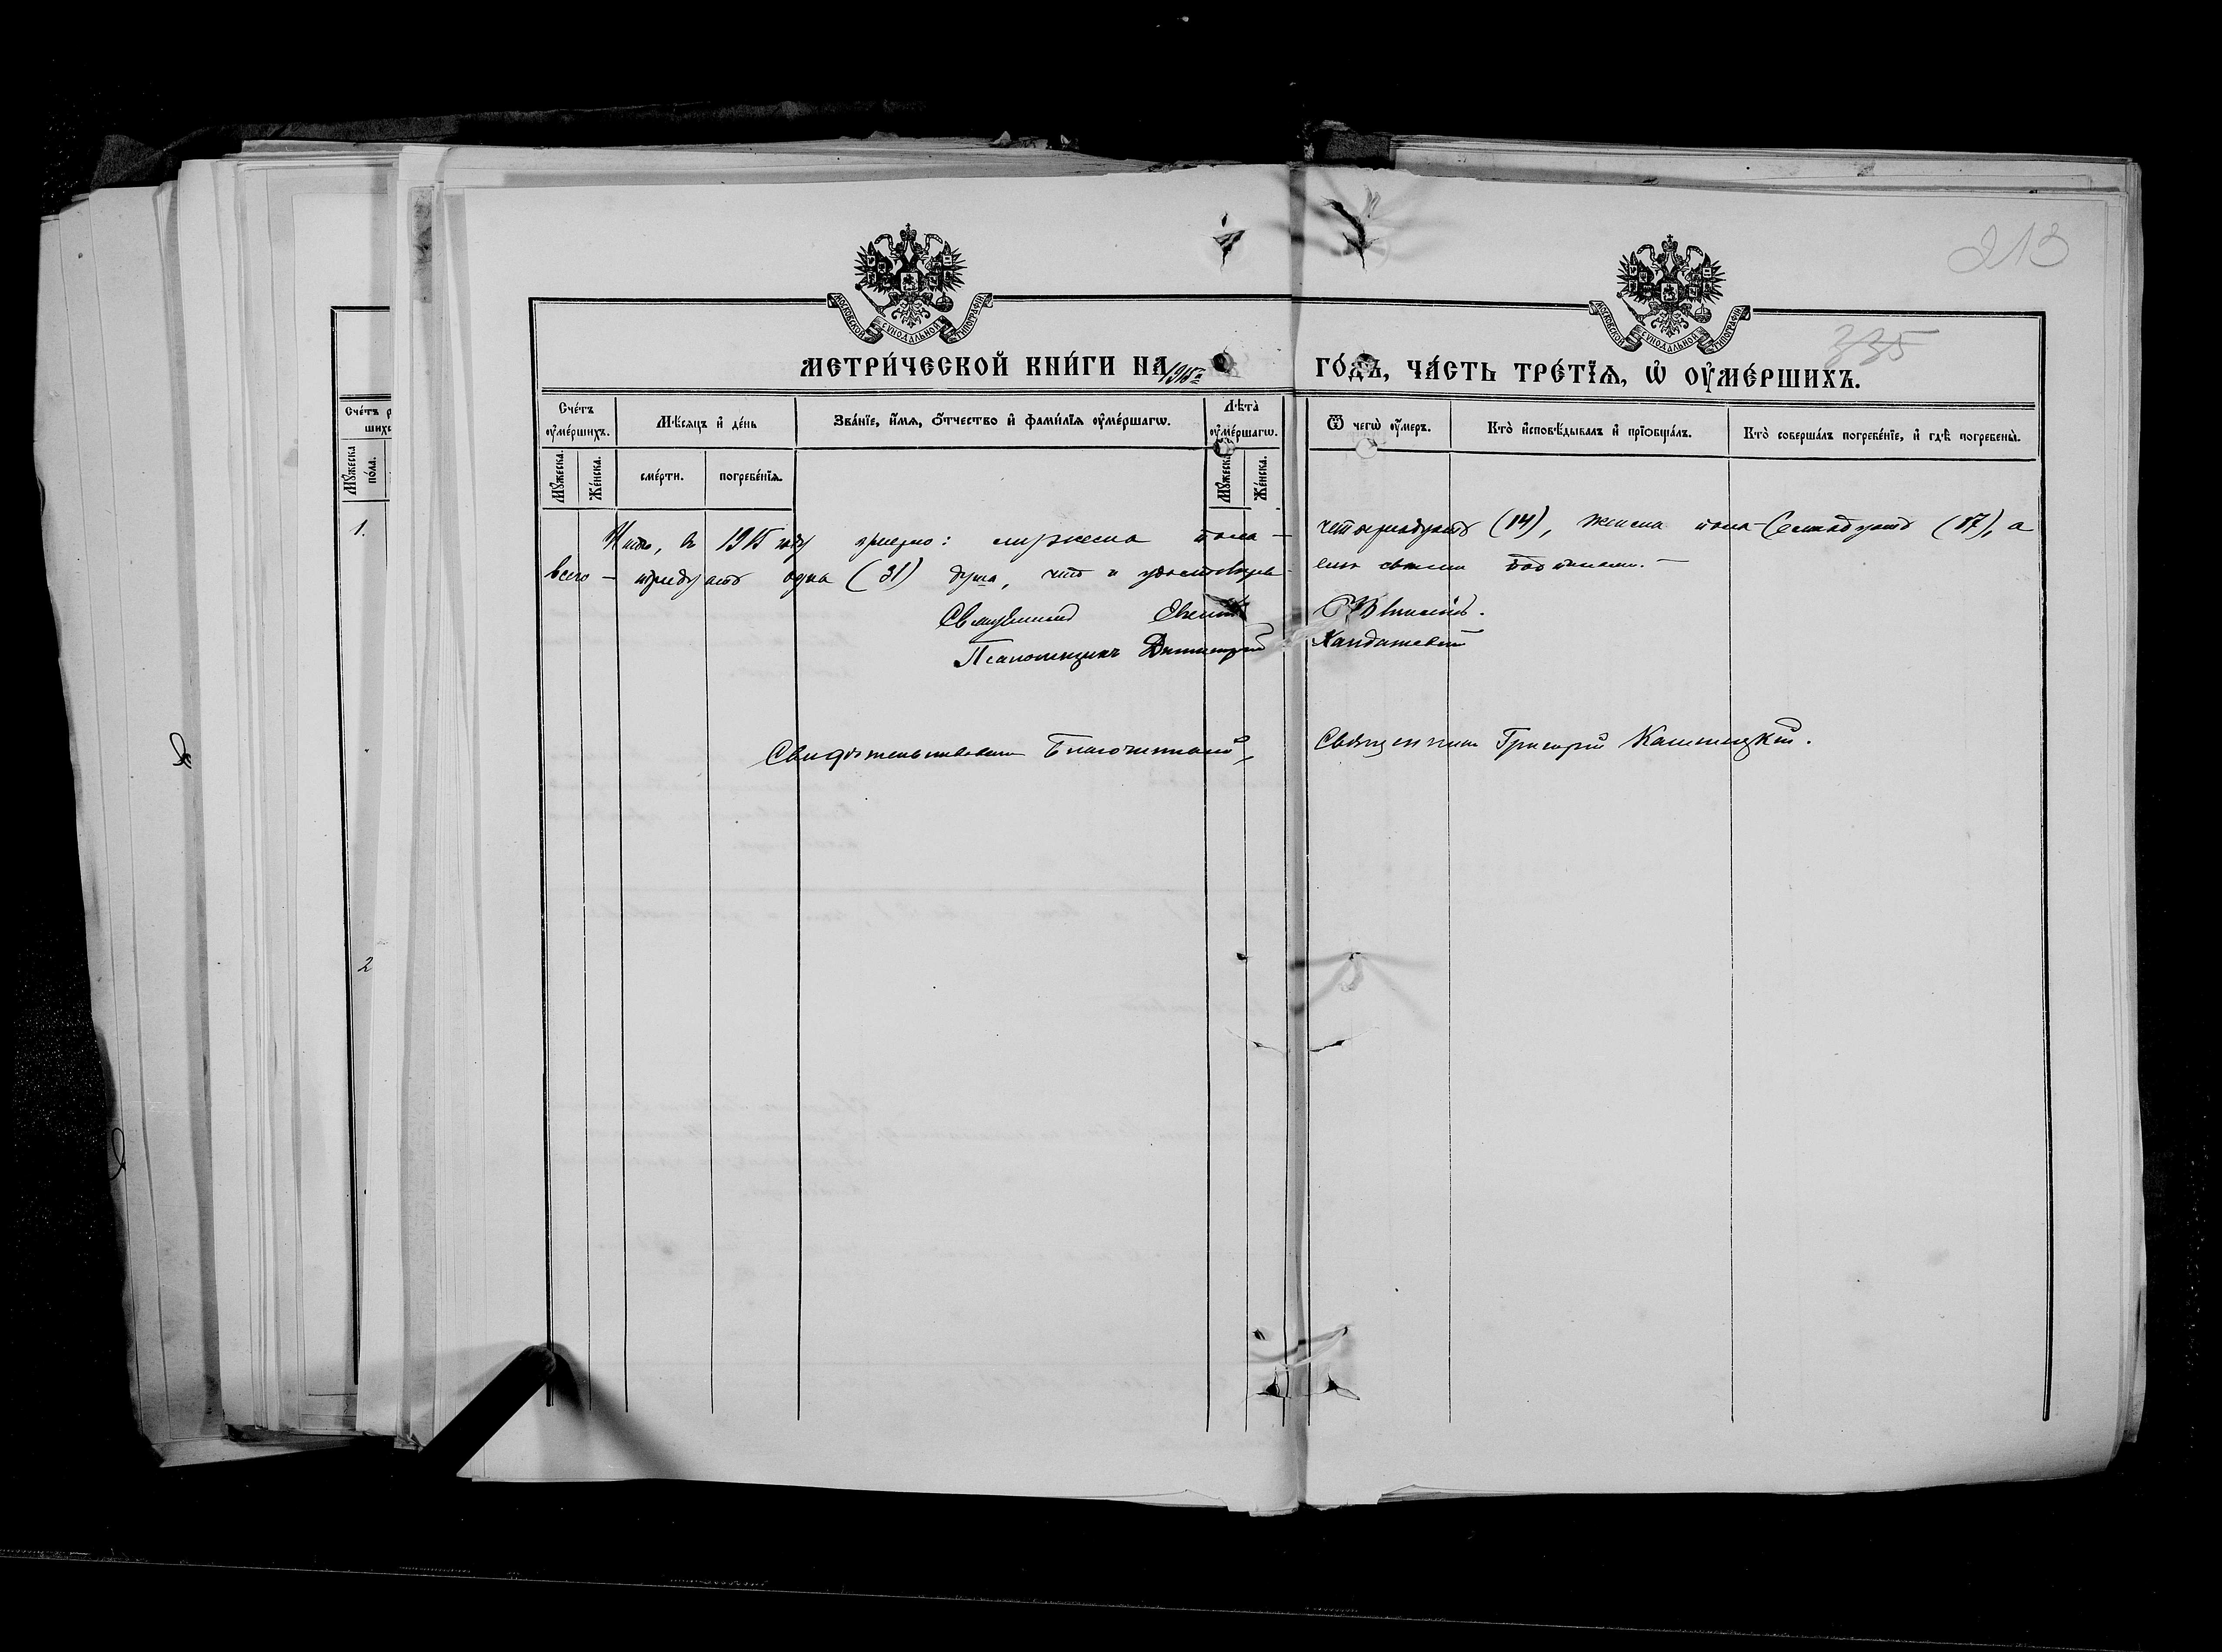 213
335
МОСКОВСКОЙ СѴНОДАЛЬНОЙ ТИПОГРАФІИ
МОСКОВСКОЙ СѴНОДАЛЬНОЙ ТИПОГРАФІИ
МЕТРИ́ЧЕСКОЙ КНИ́ГИ НА 1915 го́дъ, ча́сть тре́тїѧ, ѡ҆ ᲂу҆ме́ршихъ.
Сче́тъ ᲂу҆ме́ршихъ.
Мꙋ́жеска.
Же́нска.
Мѣ́сѧцъ и҆ де́нь
сме́рти.
погребе́нїѧ.
Зва́нїе, и҆́мѧ, ѻ҆́тчество и҆ фами́лїѧ ᲂу҆ме́ршагѡ.
Лѣ́та ᲂу҆ме́ршагѡ.
Мꙋ́жеска.
Же́нска.
Ѿ чегѡ̀ ᲂу҆́меръ.
Кто̀ и҆сповѣ́дывалъ и҆ прїѻбща́лъ.
Кто̀ соверша́лъ погребе́нїе, и҆ гдѣ̀ погребены̀.
Итого, въ 1915 году умерло: мужеска пола — четырнадцать (14), женска пола — семнадцать (17), а
всего — тридцать одна (31) душа, что и удостоверяем своими подписями. —
Священникъ Евгеній
Псаломщикъ Димитрій Кандашевскій
Свидѣтельствовалъ Благочинный, Священникъ Григорій
Сче́тъ
Мꙋ́жеска по́ла.
1.
2